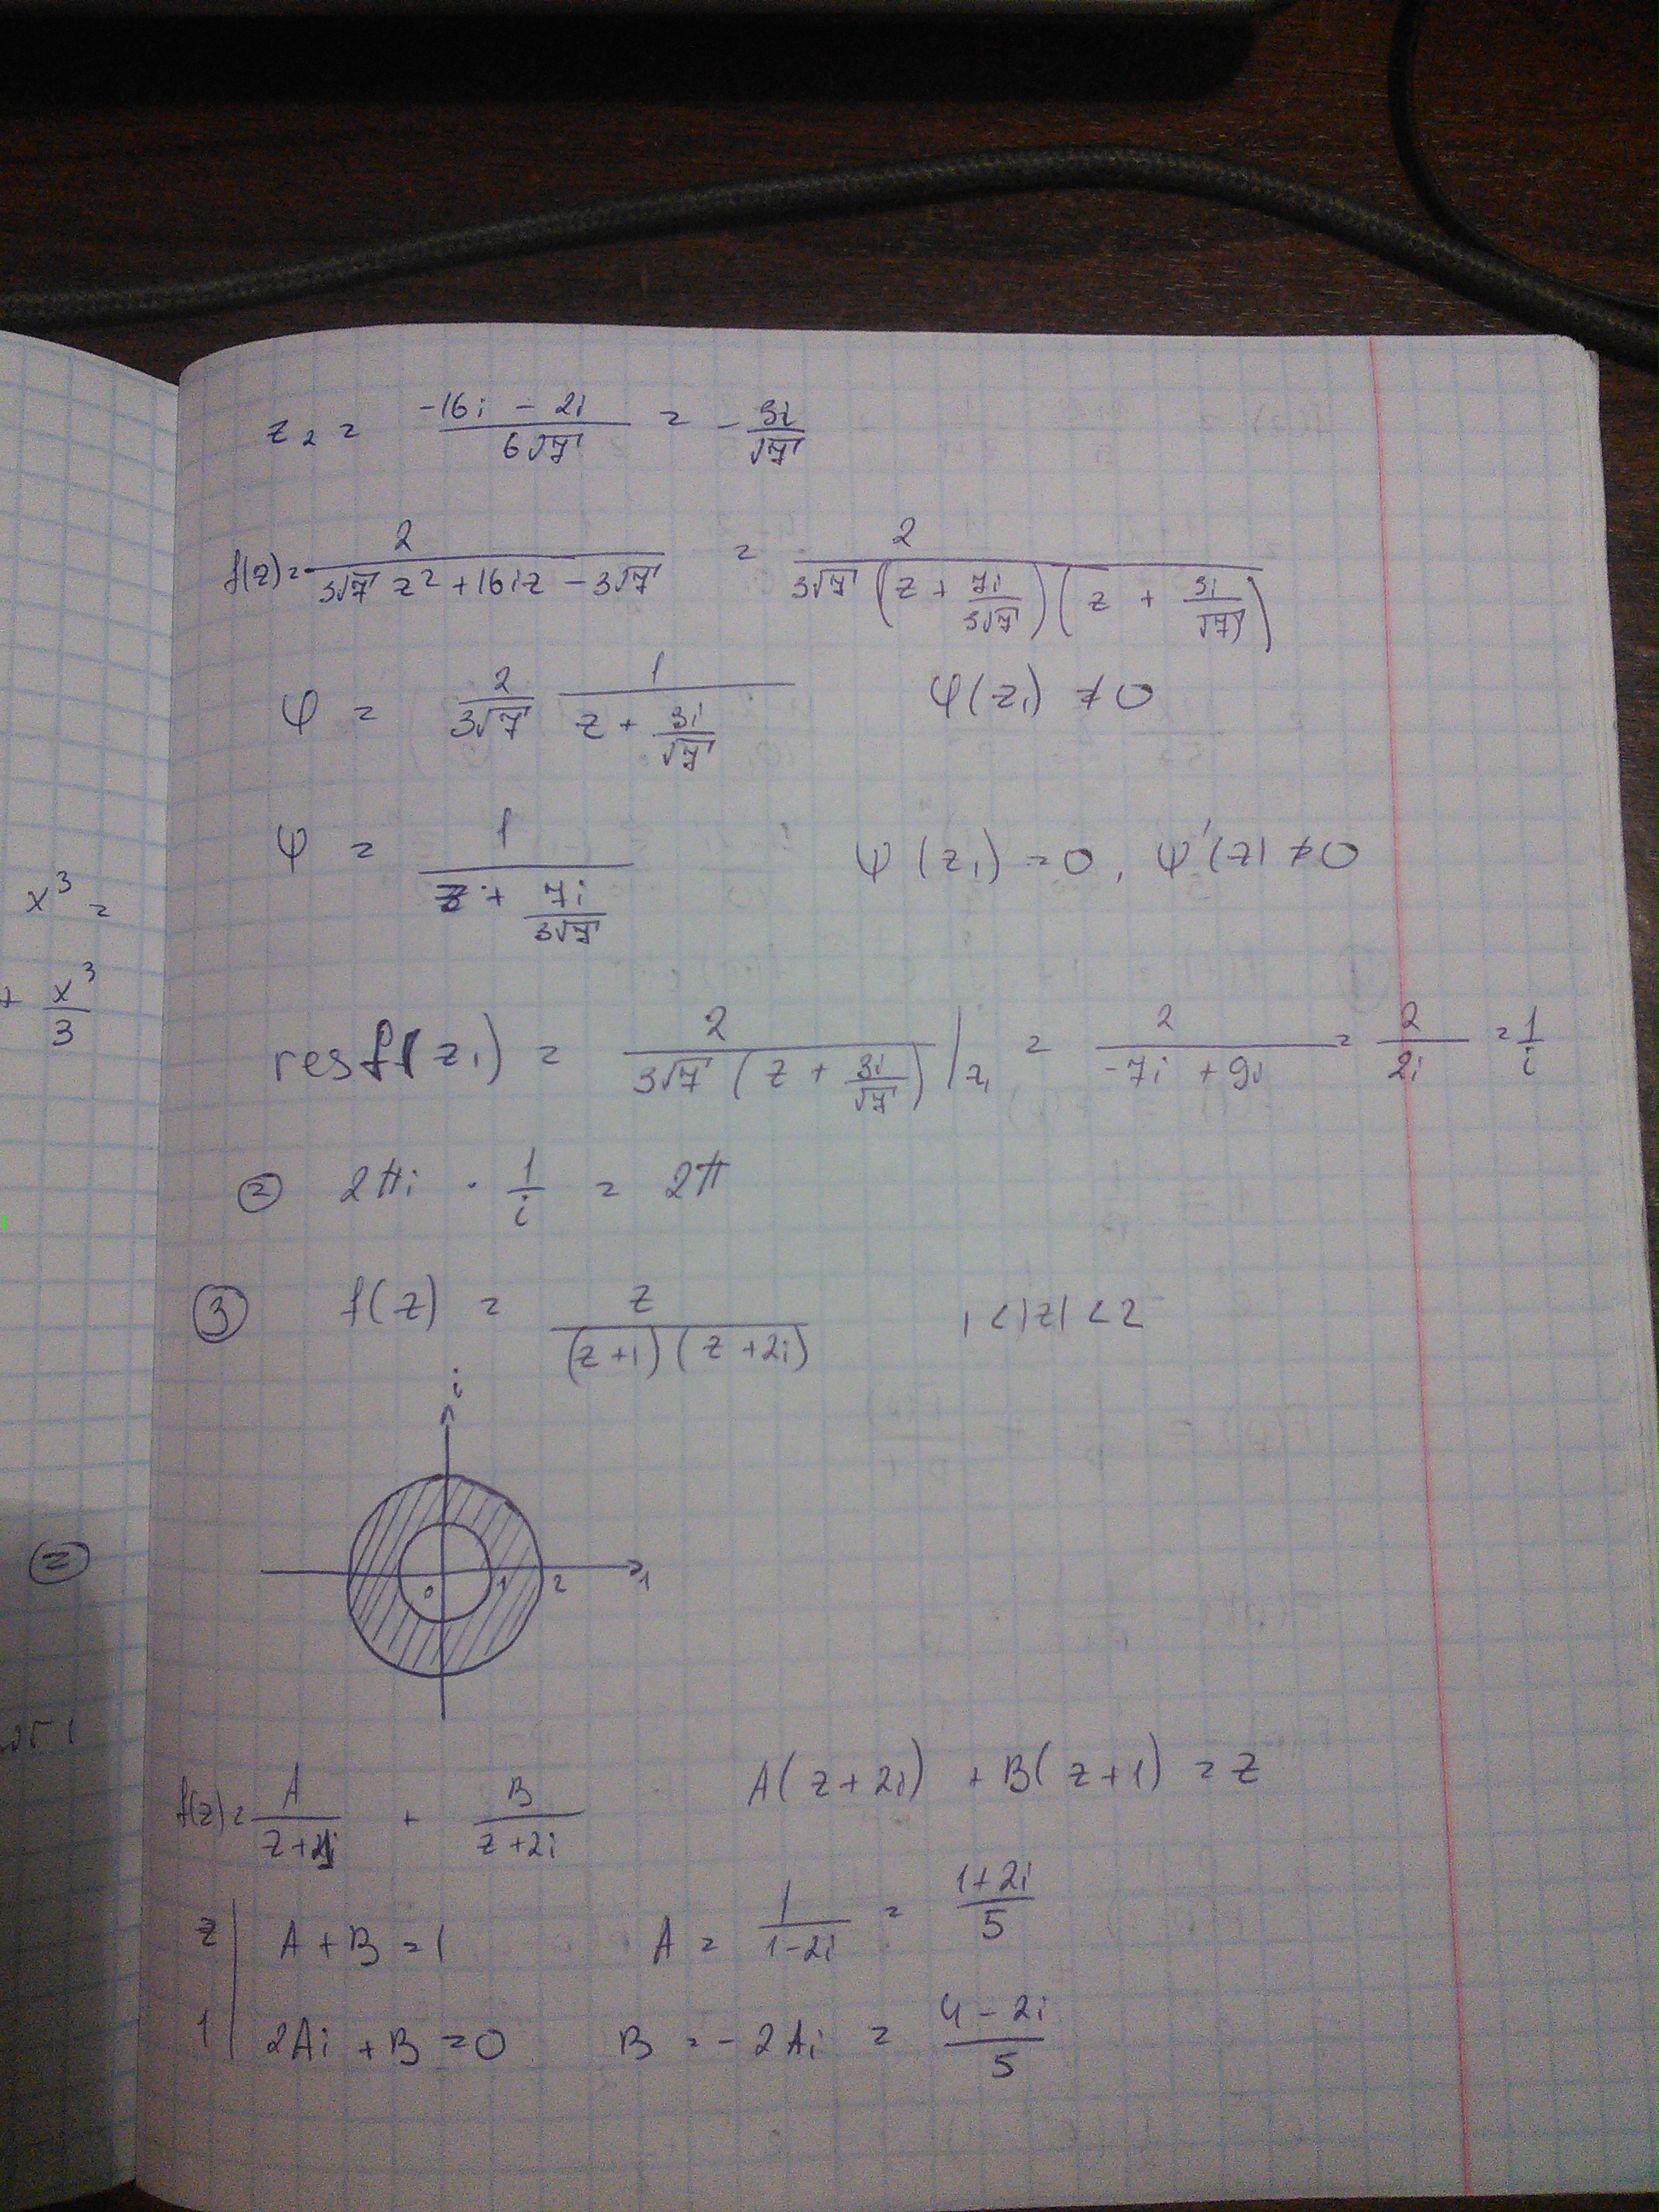 z₂ = (-16i - 2i)/(6√7) = - 3i/√7
f(z) = 2/(3√7 z² + 16iz - 3√7) = 2/(3√7 (z + 7i/(3√7))(z + 3i/√7))
φ = 2/(3√7) 1/(z + 3i/√7) φ(z₁) ≠ 0
ψ = 1/(z + 7i/(3√7)) ψ(z₁) = 0, ψ'(z) ≠ 0
res f(z₁) = 2/(3√7 (z + 3i/√7)) |z₁ = 2/(-7i + 9i) = 2/(2i) = 1/i
⊜ 2πi · 1/i = 2π
③ f(z) = z/((z+1)(z+2i)) 1 < |z| < 2
i
0 1 2 1
f(z) = A/(z+1) + B/(z+2i) A(z+2i) + B(z+1) = z
z | A + B = 1 A = 1/(1-2i) = (1+2i)/5
1 | 2Ai + B = 0 B = -2Ai = (4-2i)/5
x³ =
+ x³/3
⊜